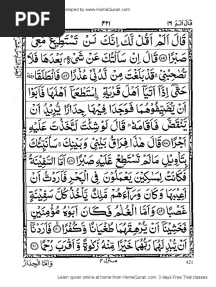 PDF
eloped by www.HomeQuran.com
قَالَ اَلَمْ ١٦
٤٢١
قَالَ اَلَمْ اَقُلْ لَّكَ اِنَّكَ لَنْ تَسْتَطِيْعَ مَعِيَ
صَبْرًا ۝ قَالَ اِنْ سَاَلْتُكَ عَنْ شَيْءٍۭ بَعْدَهَا فَلَا
تُصٰحِبْنِيْ ۚ قَدْ بَلَغْتَ مِنْ لَّدُنِّيْ عُذْرًا ۝ فَانْطَلَقَا
حَتّٰۤى اِذَاۤ اَتَيَاۤ اَهْلَ قَرْيَةِ ِۨاسْتَطْعَمَاۤ اَهْلَهَا فَاَبَوْا
اَنْ يُّضَيِّفُوْهُمَا فَوَجَدَا فِيْهَا جِدَارًا يُّرِيْدُ اَنْ
يَّنْقَضَّ فَاَقَامَهٗ ؕ قَالَ لَوْ شِئْتَ لَتَّخَذْتَ عَلَيْهِ
اَجْرًا ۝ قَالَ هٰذَا فِرَاقُ بَيْنِيْ وَبَيْنِكَ ۚ سَاُنَبِّئُكَ
بِتَاْوِيْلِ مَا لَمْ تَسْتَطِعْ عَّلَيْهِ صَبْرًا ۝ اَمَّا السَّفِيْنَةُ
فَكَانَتْ لِمَسٰكِيْنَ يَعْمَلُوْنَ فِي الْبَحْرِ فَاَرَدْتُّ اَنْ
اَعِيْبَهَا وَكَانَ وَرَآءَهُمْ مَّلِكٌ يَّاْخُذُ كُلَّ سَفِيْنَةٍ
غَصْبًا ۝ وَاَمَّا الْغُلٰمُ فَكَانَ اَبَوٰهُ مُؤْمِنَيْنِ
فَخَشِيْنَاۤ اَنْ يُّرْهِقَهُمَا طُغْيَانًا وَّكُفْرًا ۝ فَاَرَدْنَاۤ
اَنْ يُّبْدِلَهُمَا رَبُّهُمَا خَيْرًا مِّنْهُ زَكٰوةً وَّاَقْرَبَ رُحْمًا ۝
وَاَمَّا الْجِدَارُ
منزل ٤
421
Learn quran online at home from HomeQuran.com. 3 days Free Trial classes